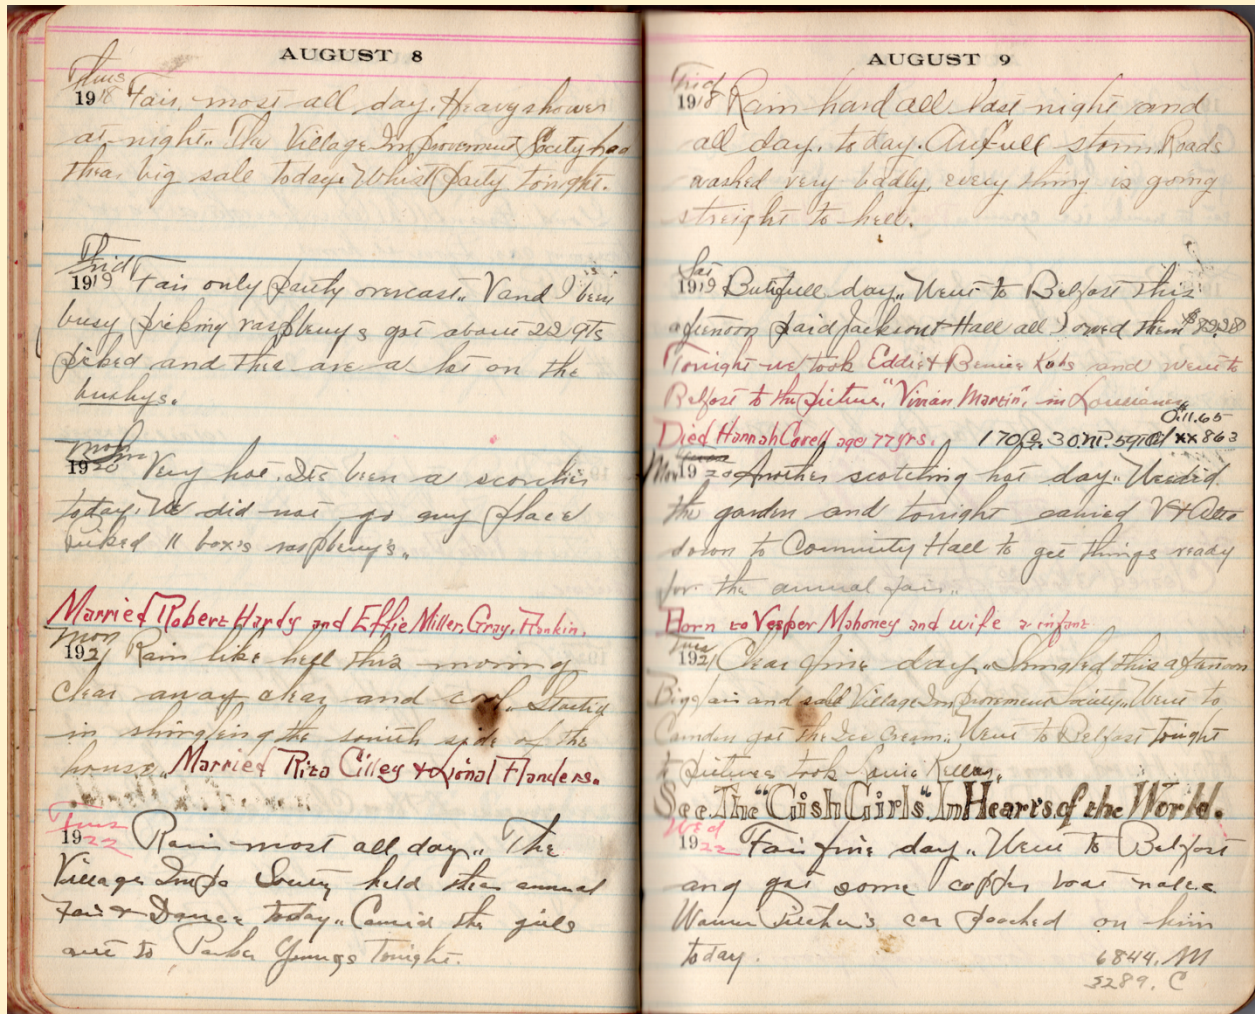 AUGUST 8
Thurs
1918 Fair, most all day. Heavy shower
at night.. The Village Improvement Society had
thear big sale today. Whist party tonight.
Frid
1919 Fair only partly overcast.. V and I been
busy picking raspberrys got about 22 qts
picked and thea are a lot on the
bushys.
Mon
1920 Very hot. Its been a scorcher
today. We did not go any place
Picked 11 box's raspberry's..
Married Robert Hardy and Effie Miller, Gray, Hankin.
Mon
1921 Rain like hell this morning
clear away clear and cool.. Started
in shingling the south side of the
house.. Married Rita Cilley & Lional Flanders.
Tues
1922 Rain most all day.. The
Village Impo Society held thear annual
Fair & Dance today.. Carried the girls
over to Parker Youngs Tonight.
AUGUST 9
Frid
1918 Rain hard all last night and
all day, today. Aufull storm. Roads
washed very badly, every thing is going
streight to hell.
Sat
1919 Butifull day.. Went to Belfast this
afternoon paid Jackson & Hall all I owed them $82.28
Tonight we took Eddie & Bernice Kobs and went to
Belfast to the picture, "Vivian Martin", in Louisiana"
0.11.65
Died Hannah Covell age 77 yrs. 170 30 xx 863
Mon 1920 Another scotching hot day.. Weeded
the garden and tonight carried V & Alta
down to Comunity Hall to get things ready
for the annual fair..
Born to Vesper Mahoney and wife a infant
Tues
1921 Clear fine day.. Shingled this afternoon
Bigg fair and sale Village Improvement Society.. Went to
Camden got the Ice Cream.. Went to Belfast tonight
to pictures took Louise Keller.
See. The "Gish Girls". In Hearts. of the World.
Wed
1922 Fair fine day.. Went to Belfast
and got some copper boat nales
Warren car poached on him
today.
6844. M
3289. C